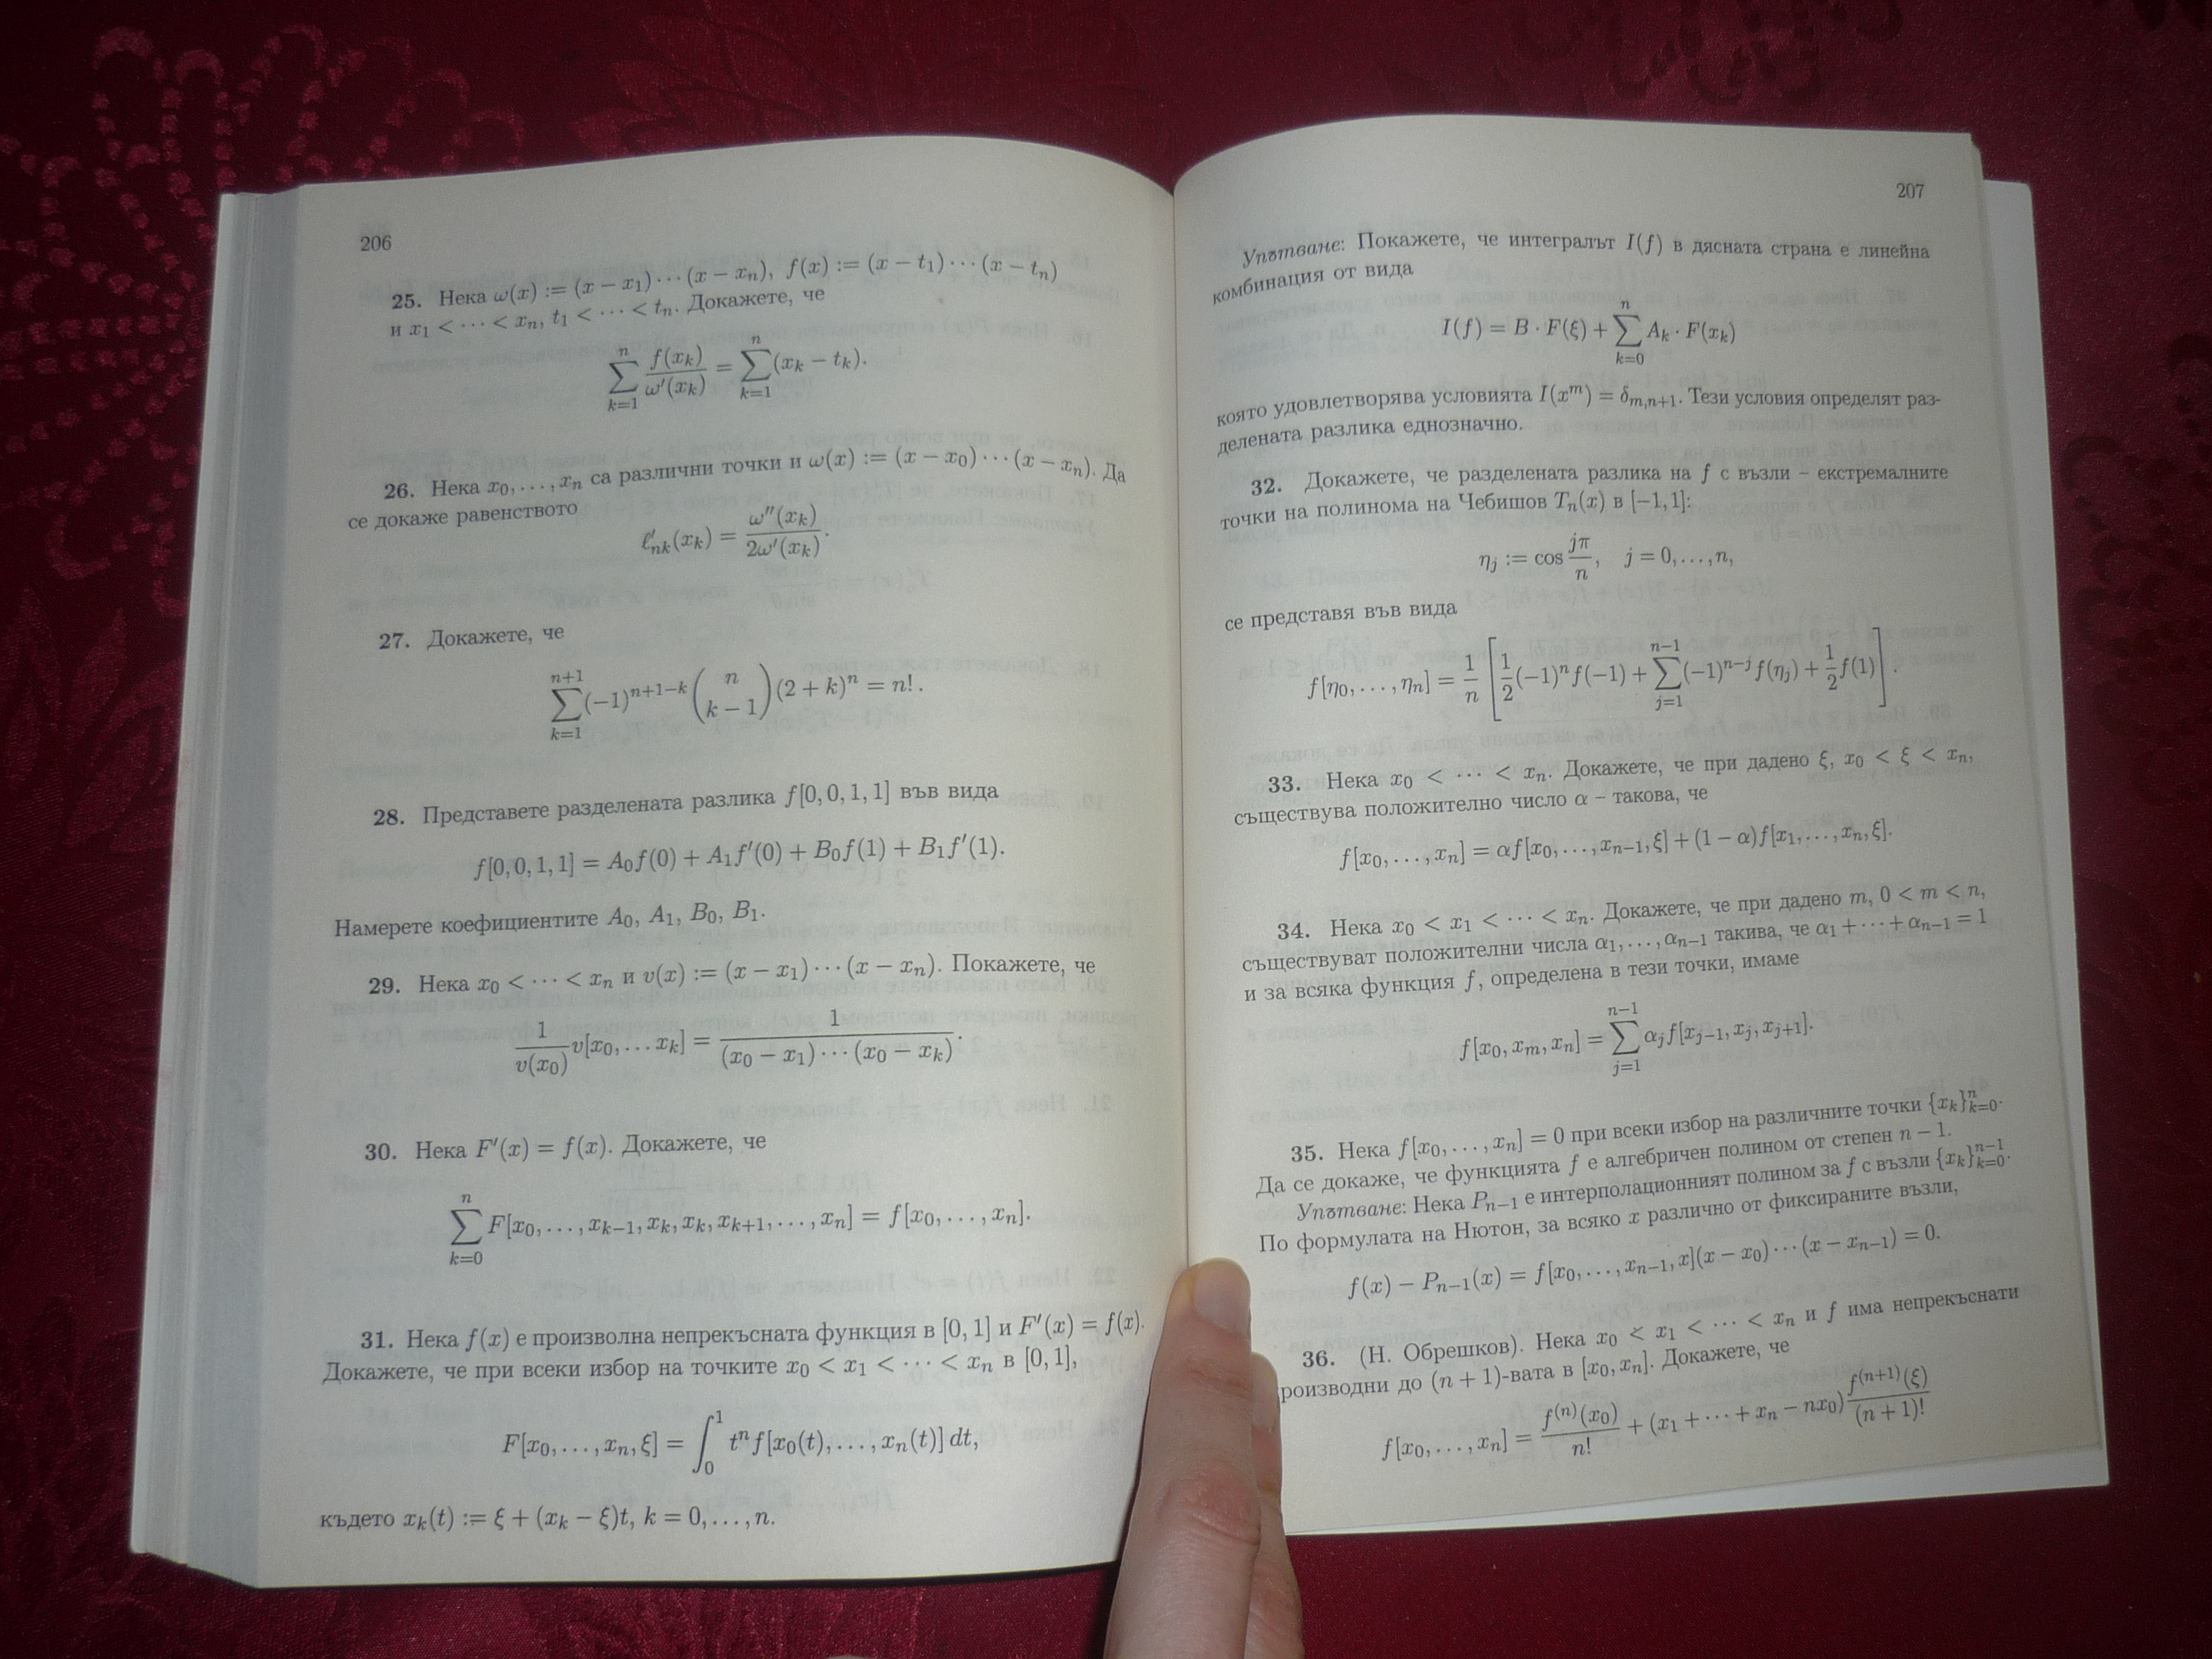 206
25. Нека ω(x) := (x − x₁)⋯(x − xₙ), f(x) := (x − t₁)⋯(x − tₙ)
и x₁ < ⋯ < xₙ, t₁ < ⋯ < tₙ. Докажете, че
\sum_{k=1}^{n} \frac{f(x_k)}{ω'(x_k)} = \sum_{k=1}^{n} (x_k − t_k).
26. Нека x₀, …, xₙ са различни точки и ω(x) := (x − x₀)⋯(x − xₙ). Да
се докаже равенството
ℓ'_{nk}(x_k) = \frac{ω''(x_k)}{2ω'(x_k)}.
27. Докажете, че
\sum_{k=1}^{n+1} (−1)^{n+1−k} \binom{n}{k−1} (2 + k)^n = n!.
28. Представете разделената разлика f[0, 0, 1, 1] във вида
f[0, 0, 1, 1] = A₀f(0) + A₁f′(0) + B₀f(1) + B₁f′(1).
Намерете коефициентите A₀, A₁, B₀, B₁.
29. Нека x₀ < ⋯ < xₙ и v(x) := (x − x₁)⋯(x − xₙ). Покажете, че
\frac{1}{v(x_0)} v[x_0, … x_k] = \frac{1}{(x_0 − x_1)⋯(x_0 − x_k)}.
30. Нека F′(x) = f(x). Докажете, че
\sum_{k=0}^{n} F[x_0, …, x_{k−1}, x_k, x_k, x_{k+1}, …, x_n] = f[x_0, …, x_n].
31. Нека f(x) е произволна непрекъсната функция в [0, 1] и F′(x) = f(x).
Докажете, че при всеки избор на точките x₀ < x₁ < ⋯ < xₙ в [0, 1],
F[x_0, …, x_n, ξ] = \int_0^1 t^n f[x_0(t), …, x_n(t)] dt,
където x_k(t) := ξ + (x_k − ξ)t, k = 0, …, n.
207
Упътване: Покажете, че интегралът I(f) в дясната страна е линейна
комбинация от вида
I(f) = B · F(ξ) + \sum_{k=0}^{n} A_k · F(x_k)
която удовлетворява условията I(x^m) = δ_{m,n+1}. Тези условия определят раз-
делената разлика еднозначно.
32. Докажете, че разделената разлика на f с възли – екстремалните
точки на полинома на Чебишов Tₙ(x) в [−1, 1]:
η_j := cos \frac{jπ}{n}, j = 0, …, n,
се представя във вида
f[η_0, …, η_n] = \frac{1}{n} \left[ \frac{1}{2}(−1)^n f(−1) + \sum_{j=1}^{n−1} (−1)^{n−j} f(η_j) + \frac{1}{2} f(1) \right].
33. Нека x₀ < ⋯ < xₙ. Докажете, че при дадено ξ, x₀ < ξ < xₙ,
съществува положително число α – такова, че
f[x_0, …, x_n] = αf[x_0, …, x_{n−1}, ξ] + (1 − α)f[x_1, …, x_n, ξ].
34. Нека x₀ < x₁ < ⋯ < xₙ. Докажете, че при дадено m, 0 < m < n,
съществуват положителни числа α₁, …, α_{n−1} такива, че α₁ + ⋯ + α_{n−1} = 1
и за всяка функция f, определена в тези точки, имаме
f[x_0, x_m, x_n] = \sum_{j=1}^{n−1} α_j f[x_{j−1}, x_j, x_{j+1}].
35. Нека f[x₀, …, xₙ] = 0 при всеки избор на различните точки {x_k}_{k=0}^{n}.
Да се докаже, че функцията f е алгебричен полином от степен n − 1.
Упътване: Нека P_{n−1} е интерполационният полином за f с възли {x_k}_{k=0}^{n−1}.
По формулата на Нютон, за всяко x различно от фиксираните възли,
f(x) − P_{n−1}(x) = f[x_0, …, x_{n−1}, x](x − x_0)⋯(x − x_{n−1}) = 0.
36. (Н. Обрешков). Нека x₀ < x₁ < ⋯ < xₙ и f има непрекъснати
роизводни до (n + 1)-вата в [x₀, xₙ]. Докажете, че
f[x_0, …, x_n] = \frac{f^{(n)}(x_0)}{n!} + (x_1 + ⋯ + x_n − nx_0) \frac{f^{(n+1)}(ξ)}{(n+1)!}